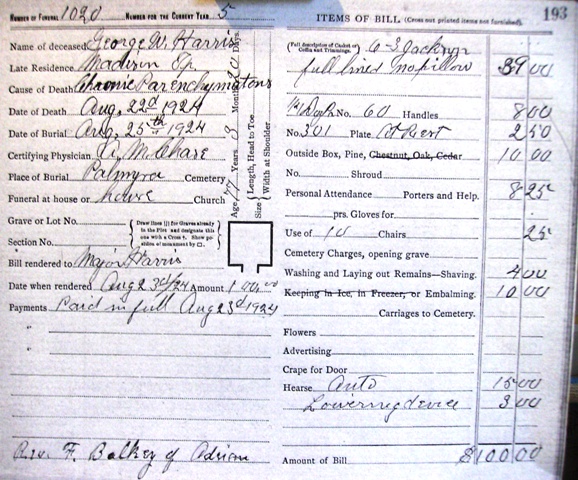 NUMBER OF FUNERAL 1020 NUMBER FOR THE CURRENT YEAR 5
Name of deceased George W. Harris
Late Residence Madison Tp.
Cause of Death Chronic Parenchymatons
Date of Death Aug. 22d 1924
Date of Burial Aug. 25th 1924
Certifying Physician A. M. Chase
Place of Burial Palmyra Cemetery
Funeral at house or house Church
Age 77 Years Months Days
Size { Length, Head to Toe
Width at Shoulder
Grave or Lot No.
Section No.
{ Draw lines (|) for Graves already in the Plot and designate this one with a Cross †. Show position of monument by □. }
Bill rendered to Major Harris
Date when rendered Aug 23d/24 Amount 100.00
Payments Paid in full Aug 23d 1924
"
"
Rev. F. Balkey of Adrian
ITEMS OF BILL (Cross out printed items not furnished). 193
(Full description of Casket or Coffin and Trimmings.) 6-3
full lined no pillow 39 00
No. 60 Handles 8 00
No. 301 Plate At Rest 2 50
Outside Box, Pine, Chestnut, Oak, Cedar 10 00
No. Shroud
Personal Attendance Porters and Help. 8 25
prs. Gloves for
Use of 10 Chairs 25
Cemetery Charges, opening grave
Washing and Laying out Remains—Shaving. 4 00
Keeping in Ice, in Freezer, or Embalming. 10 00
Carriages to Cemetery.
Flowers
Advertising
Crape for Door
Hearse Auto 15 00
Lowering device 3 00
Amount of Bill $100.00